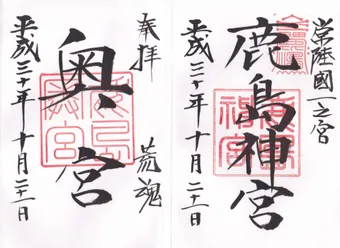 常陸國一之宮
鹿島神宮
平成三十年十月二十一日
奉拝
荒魂
奥宮
平成三十年十月二十一日